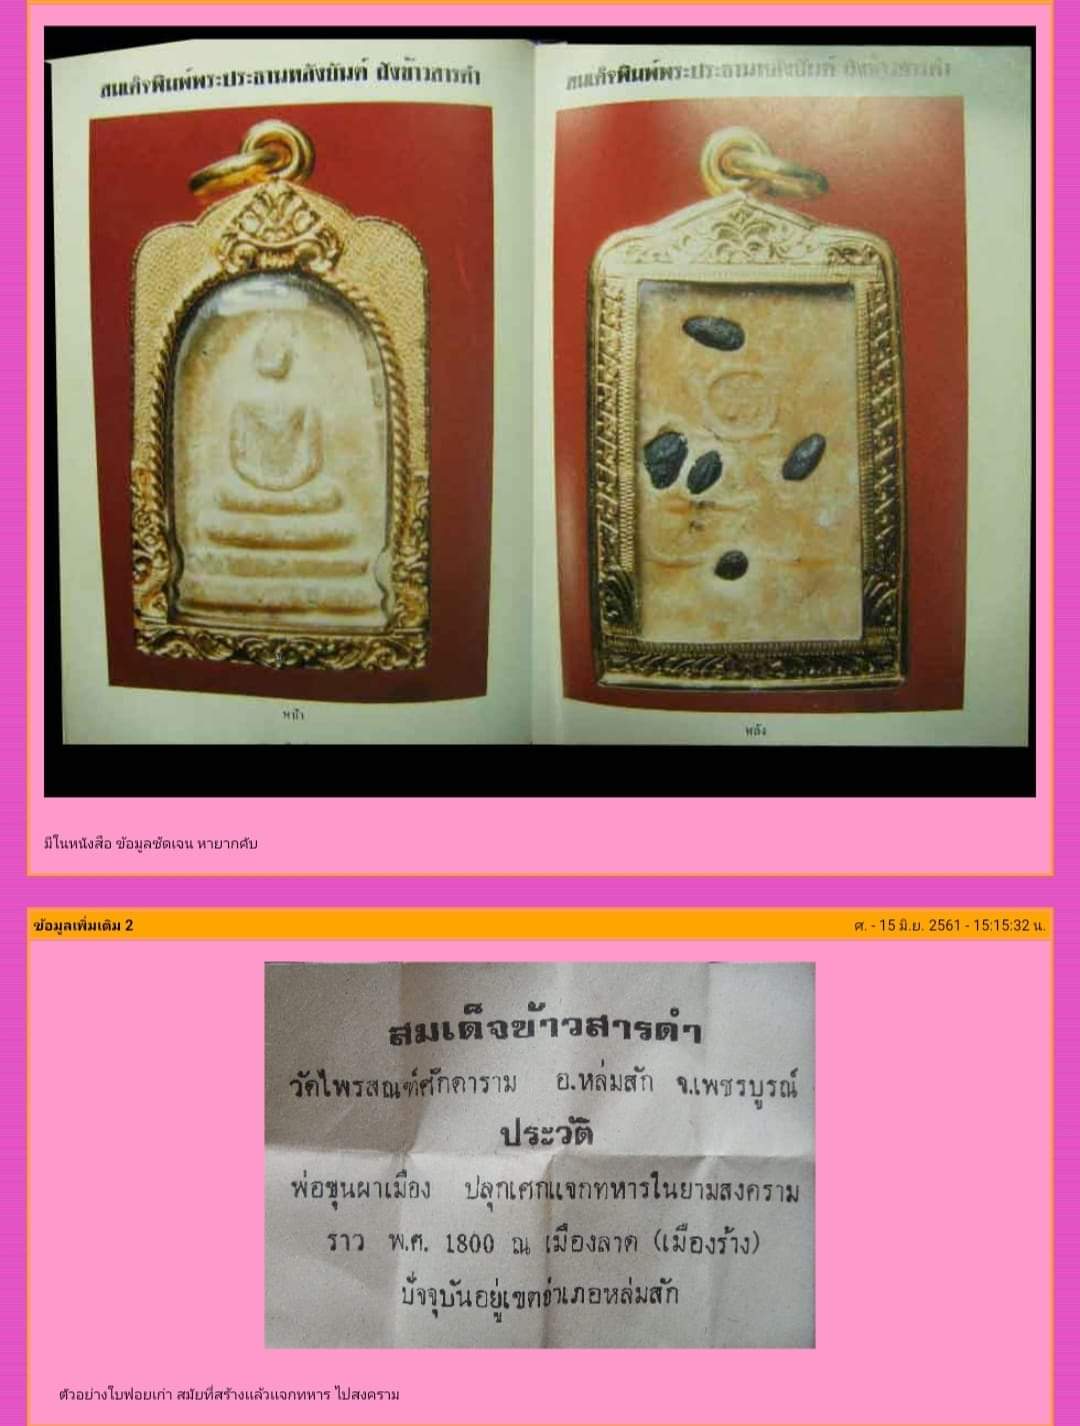 สมเด็จพิมพ์พระประธานหลังยันต์ ฝังข้าวสารดำ
สมเด็จพิมพ์พระประธานหลังยันต์ ฝังข้าวสารดำ
หน้า
หลัง
มีในหนังสือ ข้อมูลชัดเจน หายากคับ
ข้อมูลเพิ่มเติม 2
ศ. - 15 มิ.ย. 2561 - 15:15:32 น.
สมเด็จข้าวสารดำ
วัดไพรสณฑ์ศักดาราม อ.หล่มสัก จ.เพชรบูรณ์
ประวัติ
พ่อขุนผาเมือง ปลุกเศกแจกทหารในยามสงคราม
ราว พ.ศ. 1800 ณ เมืองลาด (เมืองร้าง)
ปัจจุบันอยู่เขตอำเภอหล่มสัก
ตัวอย่างใบฟอยเก่า สมัยที่สร้างแล้วแจกทหาร ไปสงคราม